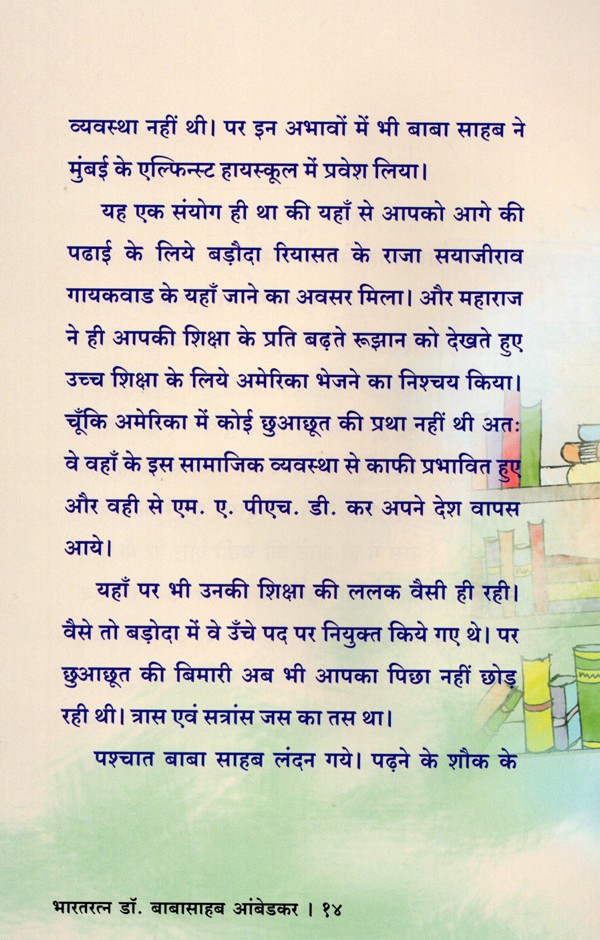 व्यवस्था नहीं थी। पर इन अभावों में भी बाबा साहब ने
मुंबई के एल्फिन्स्ट हायस्कूल में प्रवेश लिया।
यह एक संयोग ही था की यहाँ से आपको आगे की
पढाई के लिये बड़ौदा रियासत के राजा सयाजीराव
गायकवाड के यहाँ जाने का अवसर मिला। और महाराज
ने ही आपकी शिक्षा के प्रति बढ़ते रूझान को देखते हुए
उच्च शिक्षा के लिये अमेरिका भेजने का निश्चय किया।
चूँकि अमेरिका में कोई छुआछूत की प्रथा नहीं थी अतः
वे वहाँ के इस सामाजिक व्यवस्था से काफी प्रभावित हुए
और वही से एम. ए. पीएच. डी. कर अपने देश वापस
आये।
यहाँ पर भी उनकी शिक्षा की ललक वैसी ही रही।
वैसे तो बड़ोदा में वे उँचे पद पर नियुक्त किये गए थे। पर
छुआछूत की बिमारी अब भी आपका पिछा नहीं छोड़
रही थी। त्रास एवं सत्रांस जस का तस था।
पश्चात बाबा साहब लंदन गये। पढ़ने के शौक के
भारतरत्न डॉ. बाबासाहब आंबेडकर । १४